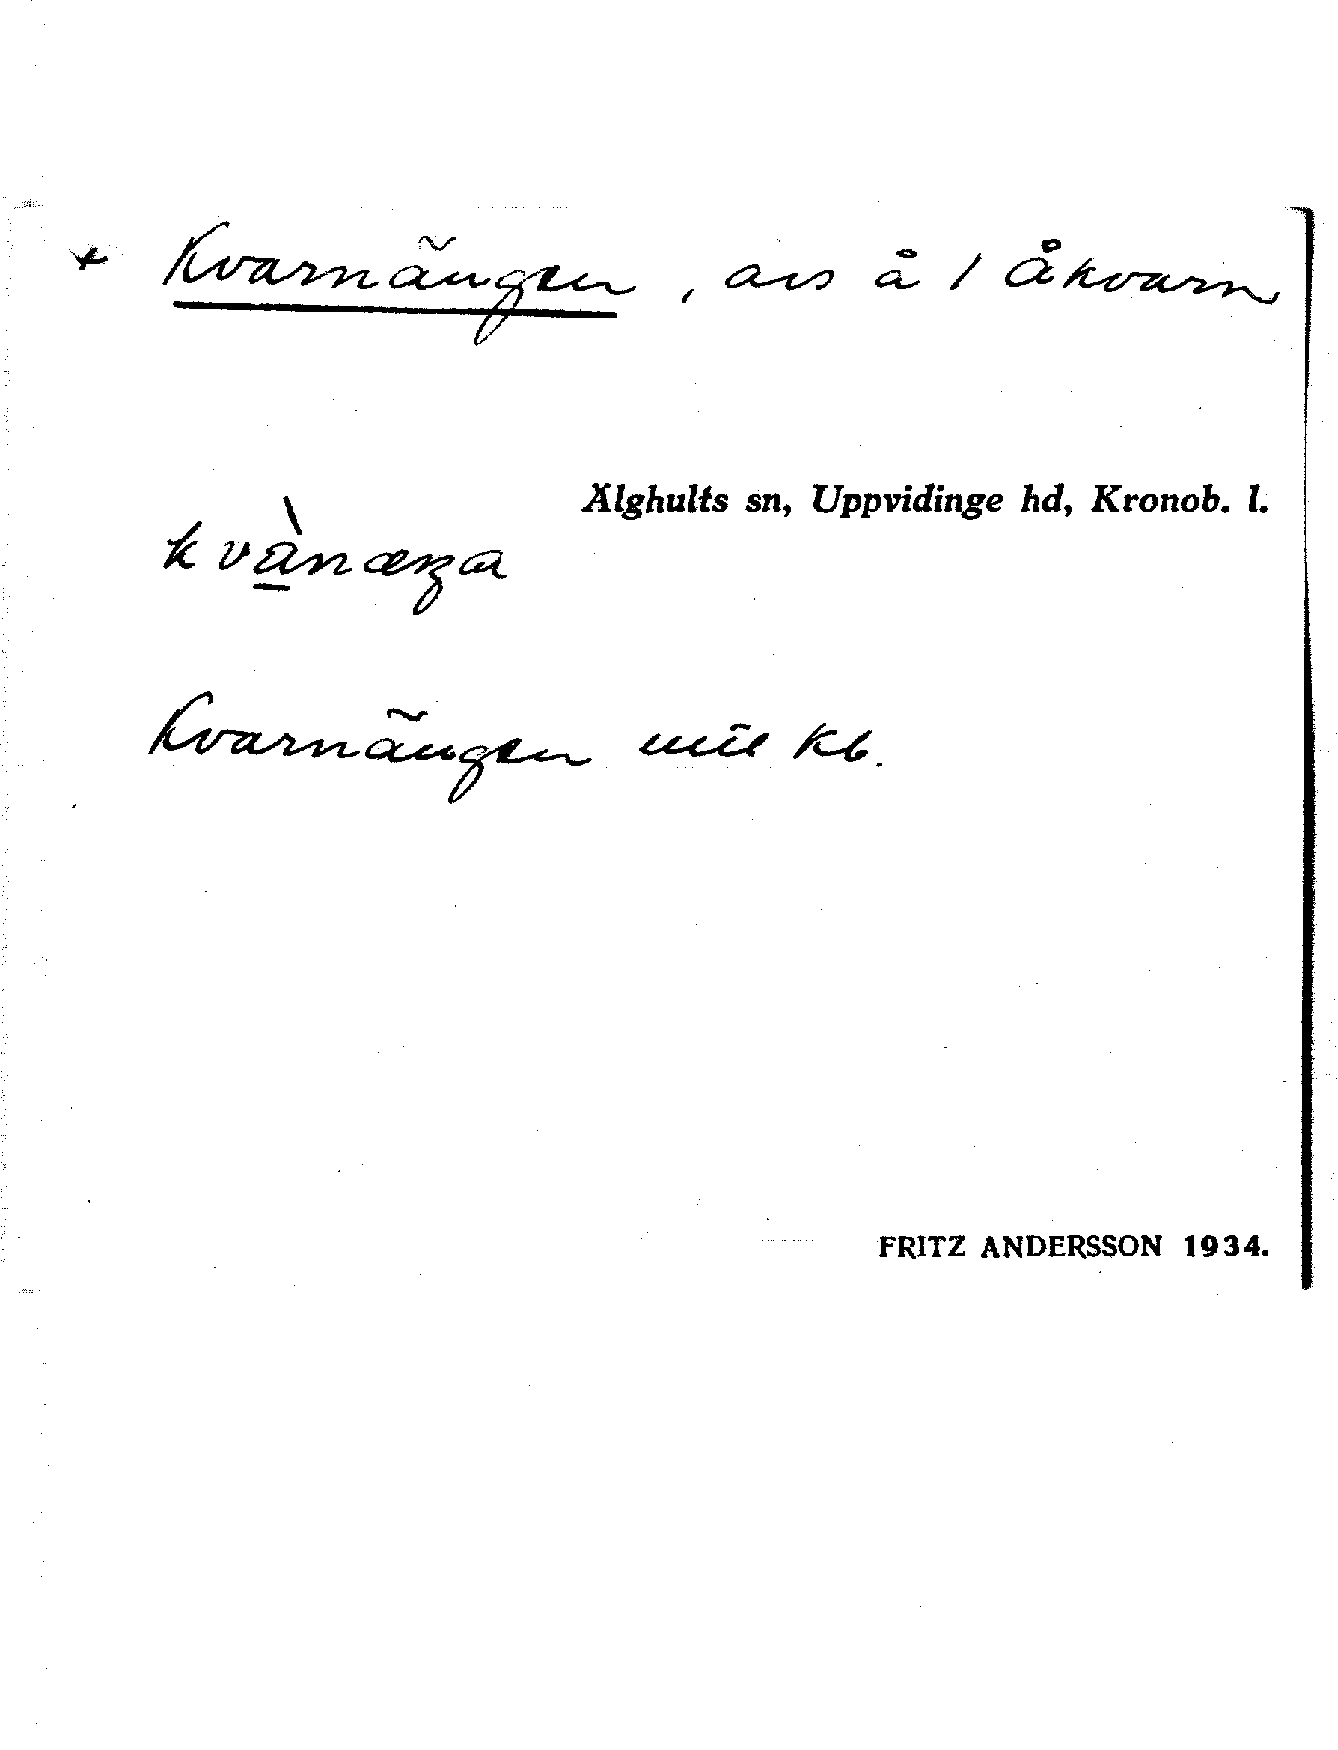 + Kvarnängen, avs å 1 Åkvarn
Älghults sn, Uppvidinge hd, Kronob. l.
kvànæŋa
Kvarnängen kb.
FRITZ ANDERSSON 1934.